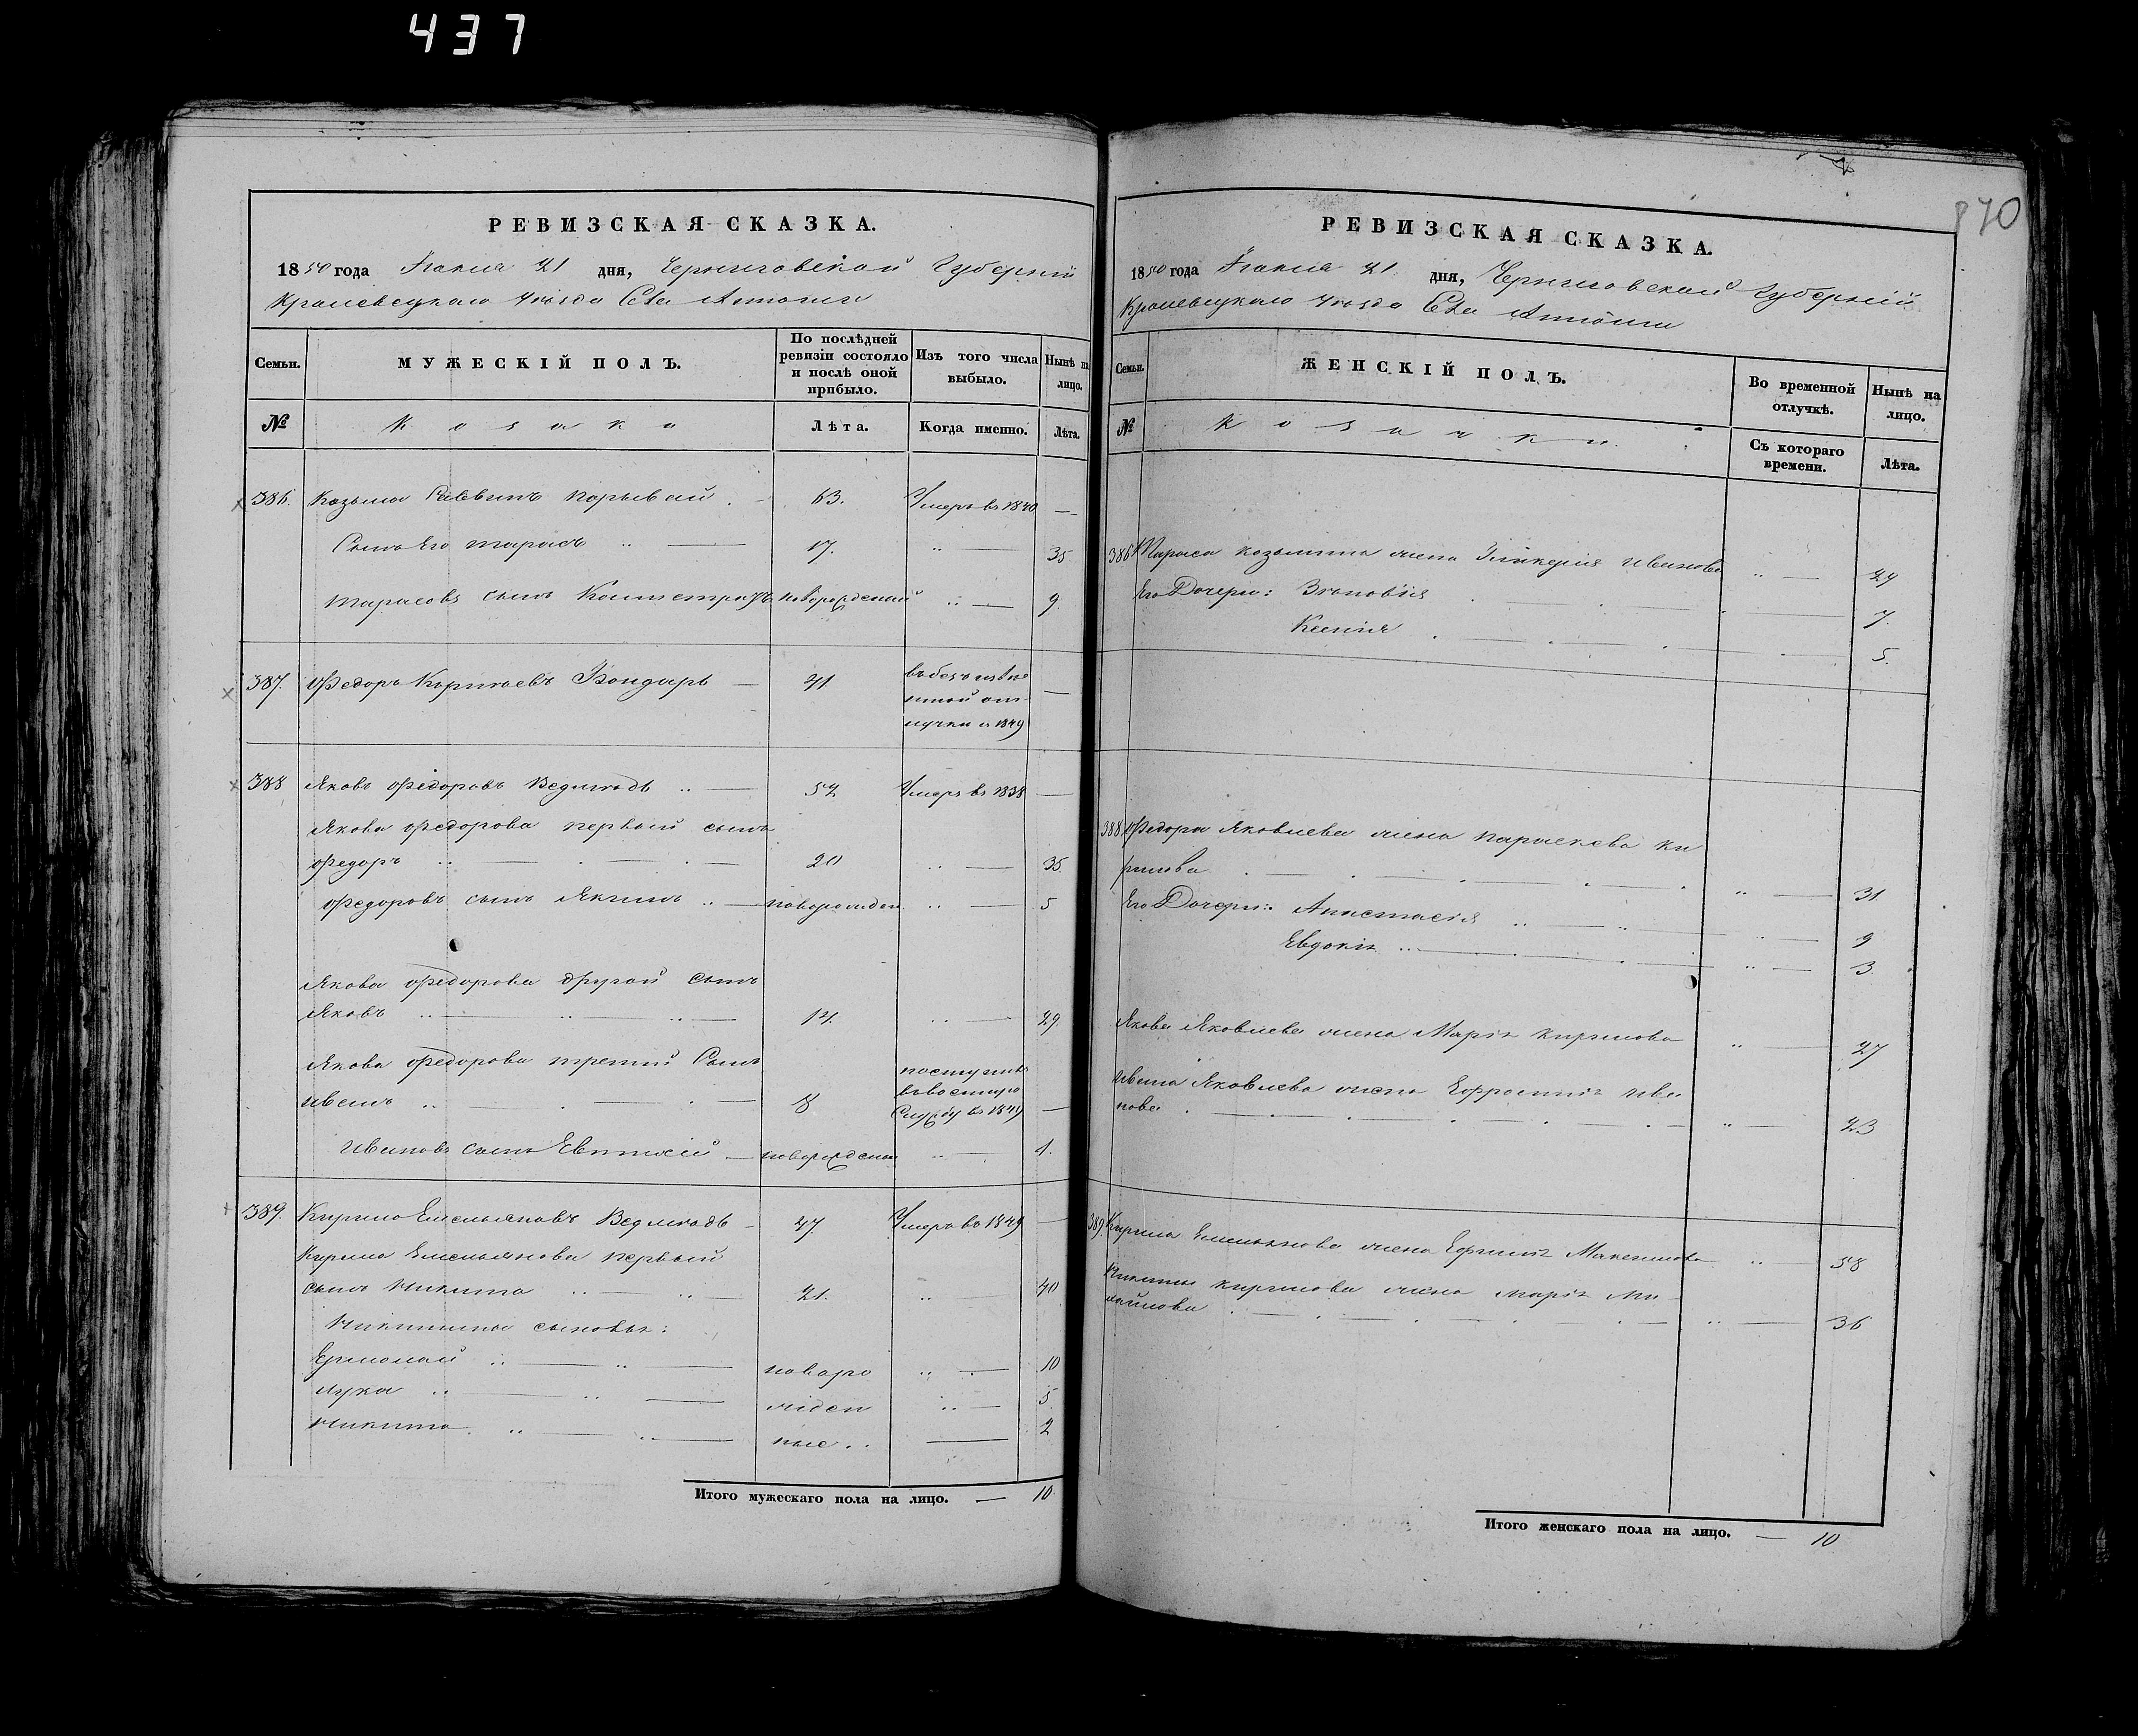 437
870
РЕВИЗСКАЯ СКАЗКА.
1850 года 21 дня, Черниговской Губерніи
Кролевецкаго уѣзда
Семьи. МУЖЕСКІЙ ПОЛЪ. По послѣдней ревизіи состояло и послѣ оной прибыло. Изъ того числа выбыло. Нынѣ на лицо.
№ Козаки Лѣта. Когда именно. Лѣта.
386. Козьма Саввинъ 63. Умеръ въ 1840 —
Сынъ его Тарасъ 17. 35
Тарасовъ сынъ новорожденный 9.
387. Федоръ Бондарь — 41 въ безъизвѣ
стной от
лучки с 1849
388 Яковъ Федоровъ Ведмѣдь 52 Умеръ въ 1838 —
Якова Федорова первый сынъ
Федоръ 20 35.
Федоровъ сынъ Якимъ новорожден 5
Якова Федорова другой сынъ
Яковъ 14. 29.
Якова Федорова третій Сынъ
Иванъ 8
поступилъ
службу въ 1849 —
Ивановъ сынъ Евтихій — новорожденный 1.
389. Кирило Емельяновъ Ведмѣдь 47. Умеръ въ 1849 —
Кирила Емельянова первый
сынъ Никита 21. 40
Никитины сыновья:
Ермолай новоро 10
Лука жден 5
Никита ные 2
Итого мужескаго пола на лицо. — 10
РЕВИЗСКАЯ СКАЗКА.
1850 года 21 дня, Черниговской Губерніи
Кролевецкаго уѣзда
Семьи. ЖЕНСКІЙ ПОЛЪ. Во временной отлучкѣ. Нынѣ на лицо.
№ Козачки. Съ котораго времени. Лѣта.
386 Тараса Козьмина жена Гликерія Иванова 29
Его Дочери: Зѣновія 7.
Ксенія 5.
388 Федора Яковлева жена Параскева Ки
рилова 31
Его Дочери: Анастасія 9
Евдокія 3
Якова Яковлева жена Марія Кирилова 27
Ивана Яковлева жена Ефросинія Ива
нова 23
389. Кирила Емельянова жена Максимова 58
Никиты Кирилова жена Марія Ми
хайлова 36
Итого женскаго пола на лицо. — 10